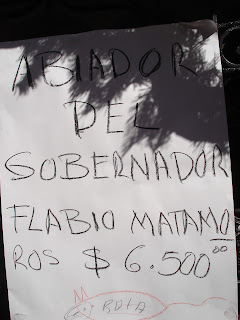 ABIADOR
DEL
SOBERNADOR
FLABIO MATAMO
ROS $ 6.500⁰⁰
ROTA